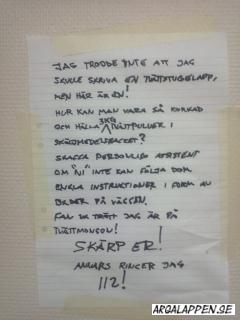 JAG TRODDE INTE ATT JAG
SKULLE SKRIVA EN TVÄTTSTUGELAPP,
MEN HÄR ÄR EN!
HUR KAN MAN VARA SÅ KORKAD
OCH HÄLLA 3KG TVÄTTPULVER I
SKÖLJMEDELSFACKET?
SKAFFA PERSONLIG ASSISTENT
OM "NI" INTE KAN FÖLJA DOM
ENKLA INSTRUKTIONER I FORM AV
BILDER PÅ VÄGGEN.
FAN VA TRÖTT JAG ÄR PÅ
TVÄTTMONGON!
SKÄRP ER!
ANNARS RINGER JAG
112!
ARGALAPPEN.SE